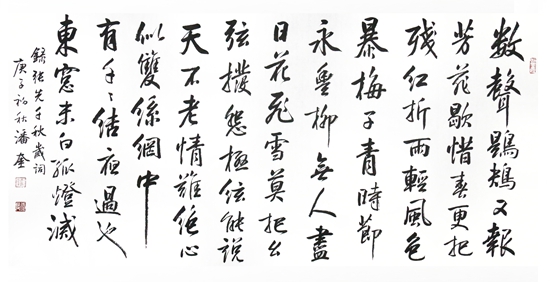 數聲鶗鴂又報
芳菲歇惜春更把
殘紅折雨輕風色
暴梅子青時節
永豐柳無人盡
日花飛雪莫把幺
弦撥怨極弦能說
天不老情難絕心
似雙絲網中
有千々結夜過也
東窓未白孤燈滅
錄張先千秋歲詞
庚子初秋潘